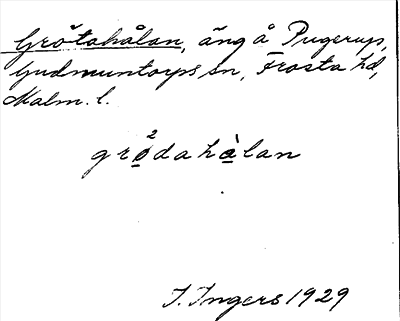 Grötahålan, äng å Pugerup,
Gudmuntorps sn, Frosta hd,
Malm. l.
grö²dahàlan
I. Ingers 1929